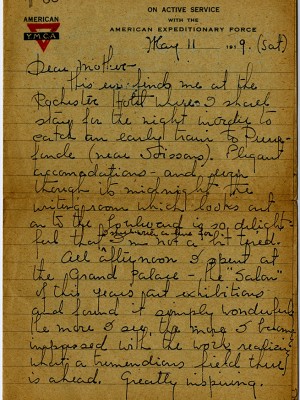 AMERICAN
YMCA
ON ACTIVE SERVICE
WITH THE
AMERICAN EXPEDITIONARY FORCE
May 11 1919. (Sat)
Dear Mother -
This eve finds me at the
Rochester Hotel where I shall
stay for the night in order to
catch an early train to
(near Soissons). Elegant
accomodations - and even
though it is midnight the
writing room which looks out
on to the Boulevard is so delight-
ful that I'm not a bit tired.
All afternoon I spent at
the Grand Palace - the "Salon"
of this years art exhibitions
and found it simply wonderful
the more I see, the more I become
impressed with the work realizing
what a tremendious field there
is ahead. Greatly inspiring.